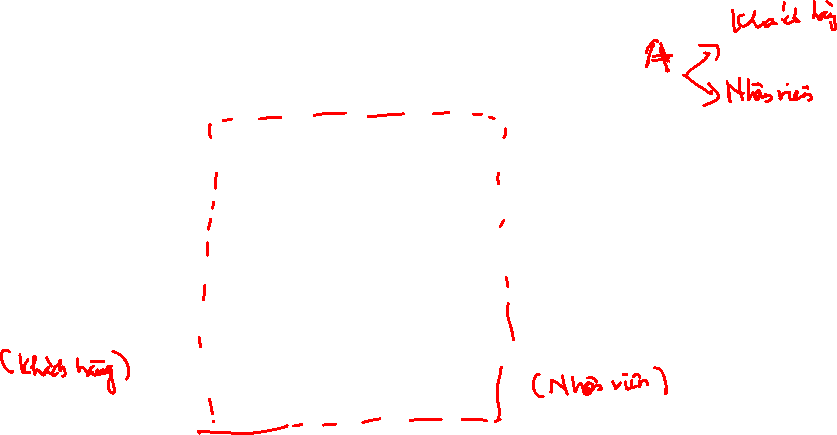 Khách hàng
A
Nhân viên
(Khách hàng)
(Nhân viên)